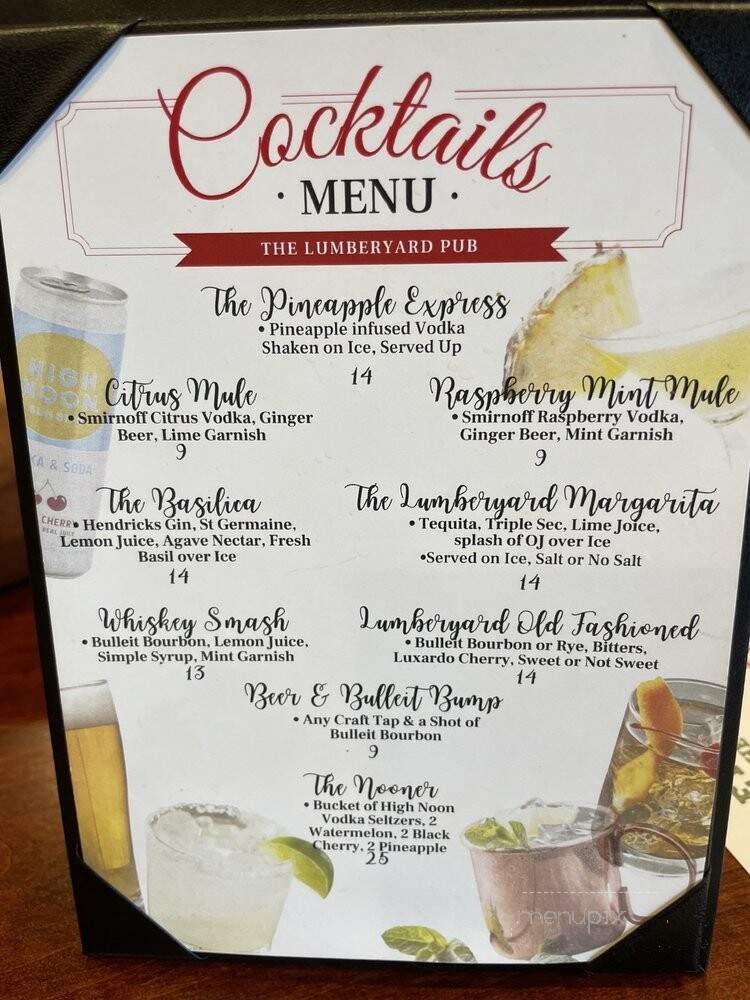 Cocktails
· MENU ·
THE LUMBERYARD PUB
The Pineapple Express
• Pineapple infused Vodka
Shaken on Ice, Served Up
14
Citrus Mule
• Smirnoff Citrus Vodka, Ginger
Beer, Lime Garnish
9
Raspberry Mint Mule
• Smirnoff Raspberry Vodka,
Ginger Beer, Mint Garnish
9
The Basilica
• Hendricks Gin, St Germaine,
Lemon Juice, Agave Nectar, Fresh
Basil over Ice
14
The Lumberyard Margarita
• Tequita, Triple Sec, Lime Joice,
splash of OJ over Ice
•Served on Ice, Salt or No Salt
14
Whiskey Smash
• Bulleit Bourbon, Lemon Juice,
Simple Syrup, Mint Garnish
13
Lumberyard Old Fashioned
• Bulleit Bourbon or Rye, Bitters,
Luxardo Cherry, Sweet or Not Sweet
14
Beer & Bulleit Bump
• Any Craft Tap & a Shot of
Bulleit Bourbon
9
The Nooner
• Bucket of High Noon
Vodka Seltzers, 2
Watermelon, 2 Black
Cherry, 2 Pineapple
25
HIGH
NOON
KA & SODA
CHERR
REAL JUICE
menupix